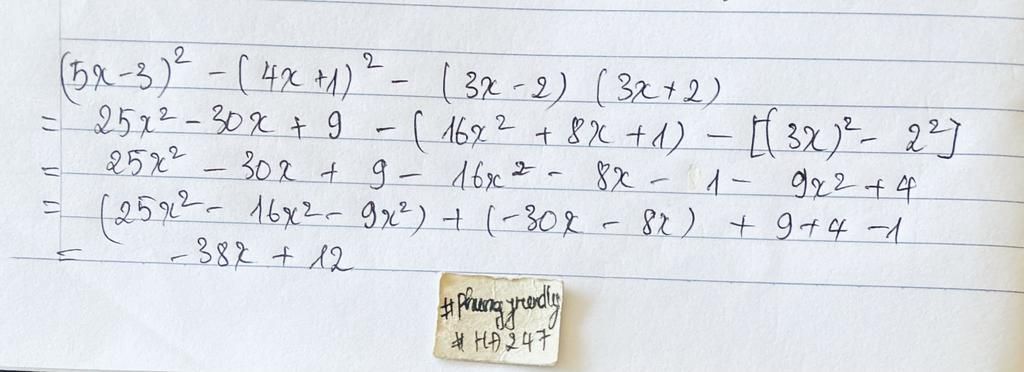 (5x-3)² - (4x+1)² - (3x-2) (3x+2)
= 25x² - 30x + 9 - (16x² + 8x + 1) - [(3x)² - 2²]
= 25x² - 30x + 9 - 16x² - 8x - 1 - 9x2 + 4
= (25x² - 16x² - 9x²) + (-30x - 8x) + 9+4 -1
= -38x + 12
# HA247